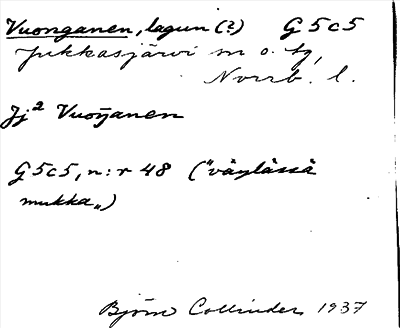 Vuonganen, lagun (?) G5c5
Jukkasjärvi sn o. tg,
Norrb. l.
Jj² Vuoŋanen
G5c5, n:r 48 ("väylässä
mukka")
Björn Collinder 1937